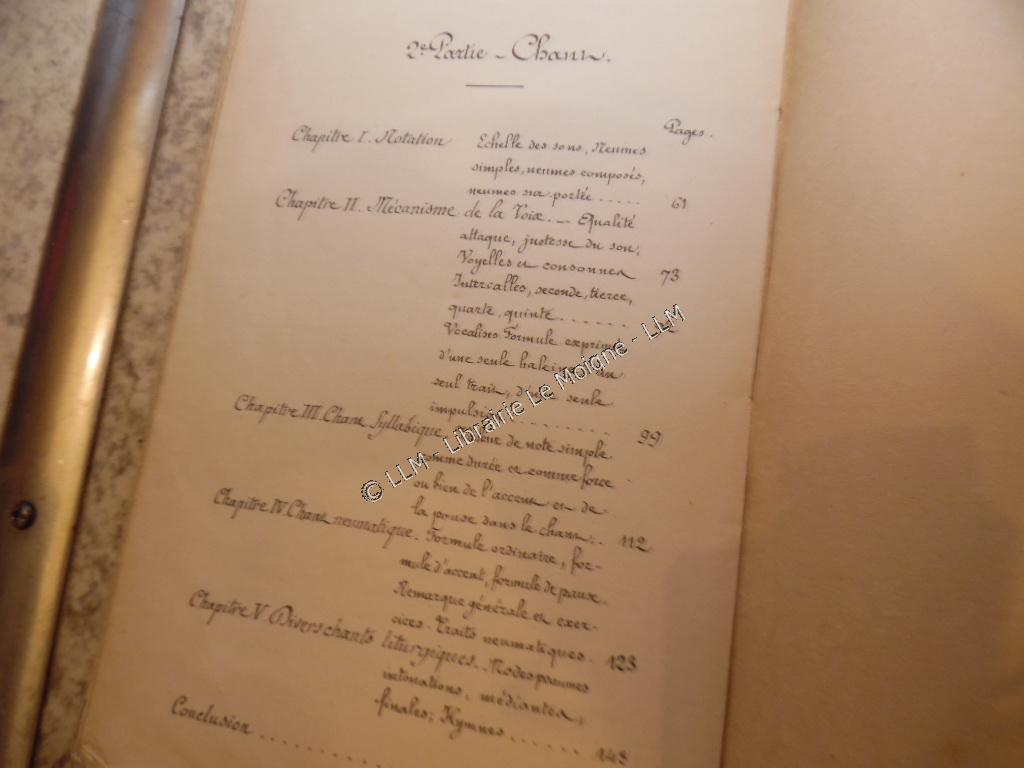 2e Partie - Chant.
Pages.
Chapitre I. Notation Echelle des sons, Neumes
simples, neumes composés,
neumes sur portée ..... 61
Chapitre II. Mécanisme de la Voix. - Equalité
attaque, justesse du son,
Voyelles et consonnes 73
Intervalles, seconde, tierce,
quarte, quinte ......
Vocalises Formule
d'une seule
seul trait, seule
99
Chapitre III. Chant Syllabique de note simple
comme durée et comme force
ou bien de l'accent et de
la pause dans le chant .. 112
Chapitre IV. Chant neumatique. Formule ordinaire, for-
mule d'accent, formule de pause.
Remarque générale et exer-
cices. Traits neumatiques. 123
Chapitre V Divers chants liturgiques. Modes psaumes
intonations, médiantes,
finales; Hymnes ...... 143
Conclusion ..........
© LLM - Librairie Le Moigne - LLM